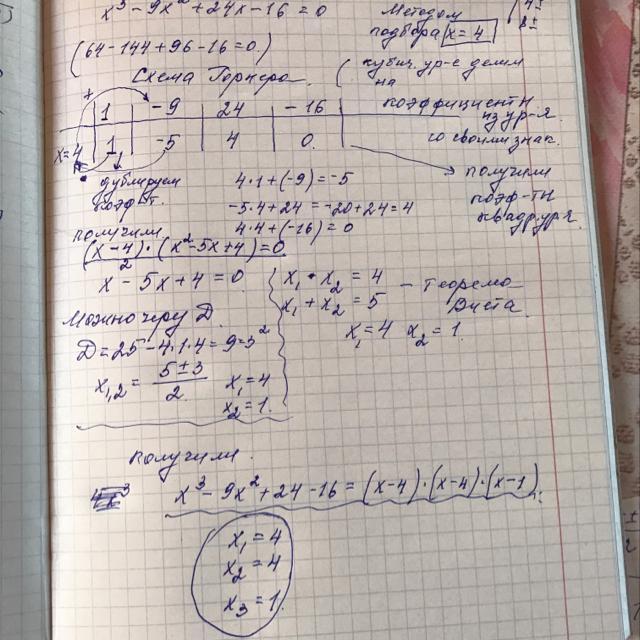 x³ - 9x² + 24x - 16 = 0
Методом
подбора x = 4
(64 - 144 + 96 - 16 = 0)
Схема Горнера
(кубич. ур-е делим
на
коэффициенты
из ур-я
со своими знак.
1 | -9 | 24 | -16
x=4 | 1 | -5 | 4 | 0
дублируем
коэф-т
4·1+(-9) = -5
-5·4+24 = -20+24 = 4
4·4+(-16) = 0
получили
коэф-ты
квадр.ур-я
получили
(x-4)·(x²-5x+4)=0
x² - 5x + 4 = 0
x₁ · x₂ = 4
x₁ + x₂ = 5
- Теорема
Виета.
x₁ = 4 x₂ = 1
Можно через Д
Д = 25 - 4·1·4 = 9 = 3²
x₁,₂ = (5±3)/2
x₁ = 4
x₂ = 1
получили
x³ - 9x² + 24 - 16 = (x-4)·(x-4)·(x-1)
x₁ = 4
x₂ = 4
x₃ = 1